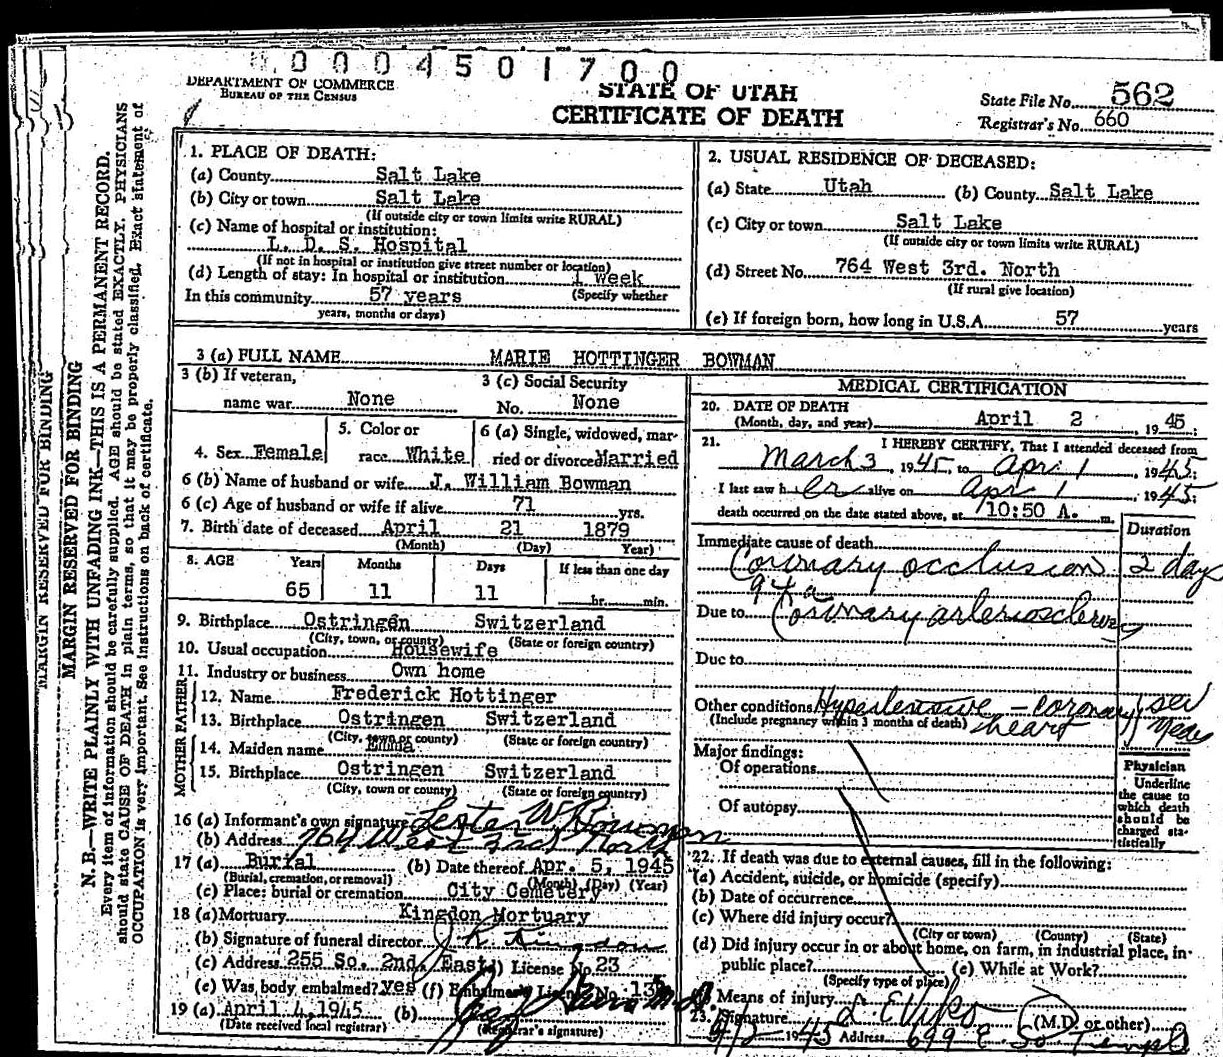 0004501700
DEPARTMENT OF COMMERCE
BUREAU OF THE CENSUS
STATE OF UTAH
CERTIFICATE OF DEATH
State File No. 562
Registrar's No. 660
MARGIN RESERVED FOR BINDING
MARGIN RESERVED FOR BINDING
N. B.—WRITE PLAINLY WITH UNFADING INK—THIS IS A PERMANENT RECORD.
Every item of information should be carefully supplied. AGE should be stated EXACTLY. PHYSICIANS
should state CAUSE OF DEATH in plain terms, so that it may be properly classified. Exact statement of
OCCUPATION is very important. See instructions on back of certificate.
1. PLACE OF DEATH:
(a) County Salt Lake
(b) City or town Salt Lake
(If outside city or town limits write RURAL)
(c) Name of hospital or institution:
L. D. S. Hospital
(If not in hospital or institution give street number or location)
(d) Length of stay: In hospital or institution 1 week
(Specify whether
In this community 57 years
years, months or days)
2. USUAL RESIDENCE OF DECEASED:
(a) State Utah (b) County Salt Lake
(c) City or town Salt Lake
(If outside city or town limits write RURAL)
(d) Street No. 764 West 3rd. North
(If rural give location)
(e) If foreign born, how long in U.S.A. 57 years
3 (a) FULL NAME MARIE HOTTINGER BOWMAN
3 (b) If veteran,
name war None
3 (c) Social Security
No. None
4. Sex Female
5. Color or
race White
6 (a) Single, widowed, mar-
ried or divorced Married
6 (b) Name of husband or wife J. William Bowman
6 (c) Age of husband or wife if alive 71 yrs.
7. Birth date of deceased April 21 1879
(Month) (Day) Year)
8. AGE Years Months Days If less than one day
65 11 11 hr. min.
9. Birthplace Ostringen Switzerland
(City, town, or county) (State or foreign country)
10. Usual occupation Housewife
11. Industry or business Own home
FATHER
12. Name Frederick Hottinger
13. Birthplace Ostringen Switzerland
(City, town or county) (State or foreign country)
MOTHER
14. Maiden name Emma
15. Birthplace Ostringen Switzerland
(City, town or county) (State or foreign country)
16 (a) Informant's own signature Lester W Bowman
(b) Address 764 West 3rd North
17 (a) Burial (b) Date thereof Apr. 5, 1945
(Burial, cremation, or removal) (Month) (Day) (Year)
(c) Place: burial or cremation City Cemetery
18 (a) Mortuary Kingdon Mortuary
(b) Signature of funeral director J R Kingdon
(c) Address 255 So. 2nd. East (d) License No. 23
(e) Was body embalmed? Yes (f) Embalmer's License No. 135
19 (a) April 4, 1945 (b) M.D.
(Date received local registrar) (Registrar's signature)
MEDICAL CERTIFICATION
20. DATE OF DEATH
(Month, day, and year) April 2, 1945;
21. I HEREBY CERTIFY, That I attended deceased from
March 3, 1945, to Apr 1, 1945;
I last saw her alive on Apr 1, 1945;
death occurred on the date stated above, at 10:50 A. m.
Duration
Immediate cause of death
Coronary occlusion 2 days
94a
Due to Coronary arteriosclerosis
Due to
Other conditions Hypertensive – coronary
(Include pregnancy within 3 months of death) heart
Major findings:
Of operations
Of autopsy
Physician
Underline
the cause to
which death
should be
charged sta-
tistically
22. If death was due to external causes, fill in the following:
(a) Accident, suicide, or homicide (specify)
(b) Date of occurrence
(c) Where did injury occur?
(City or town) (County) (State)
(d) Did injury occur in or about home, on farm, in industrial place, in-
public place? (e) While at Work?
(Specify type of place)
Means of injury
23. Signature (M.D. or other)
4/2 1945 Address 699 E So Temple